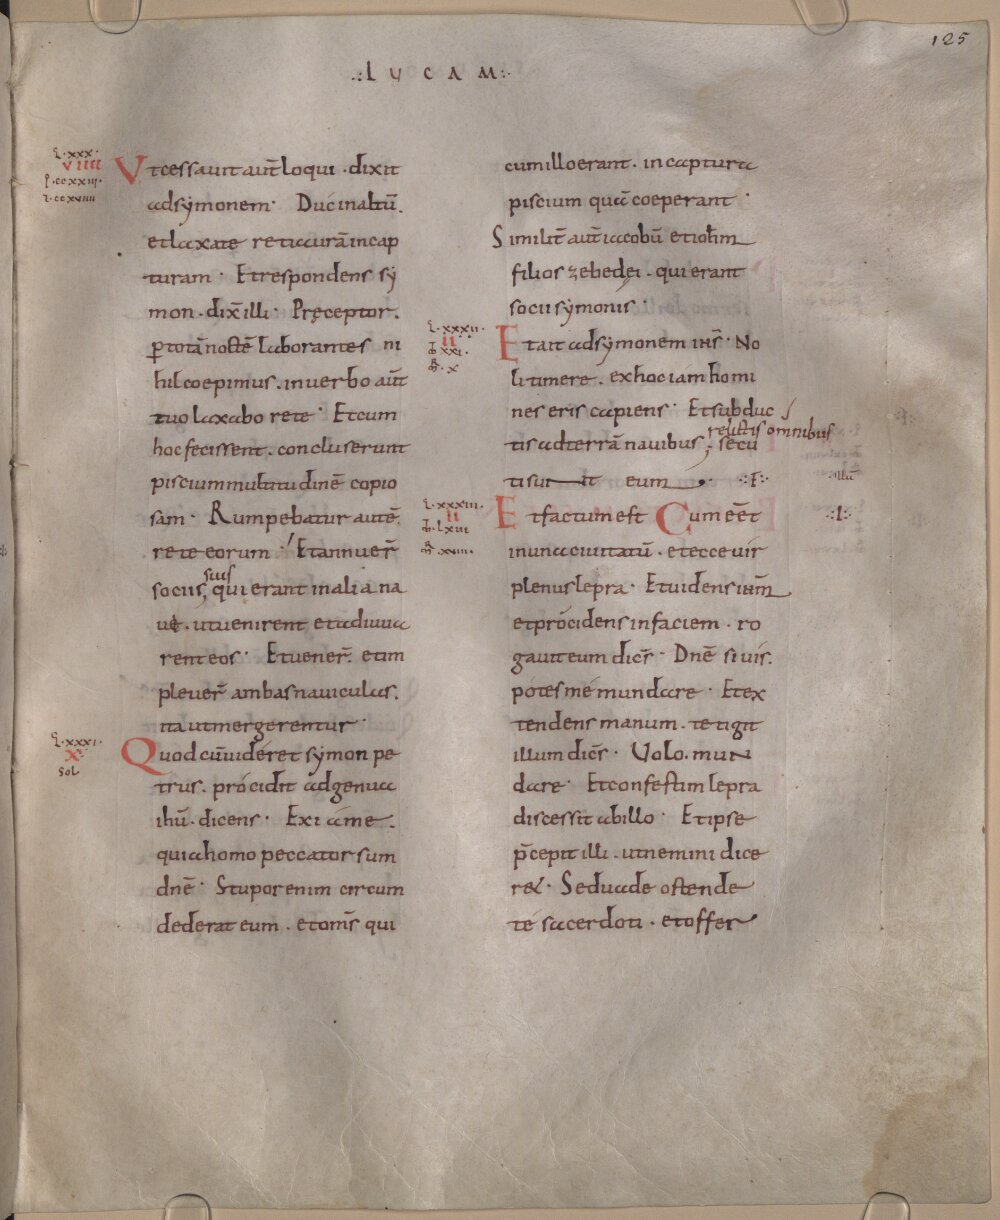 125
.:LUCAM:.
L.xxx.
VIIII
I.ccxviiii
Ut cessavit aut̄ loqui . dixit
ad symonem · Duc in altū .
et laxate retia urā in cap
turam · Et respondens sy
mon . dix̄ illi · Pręceptor .
p̄ totā noctē laborantes ni
hil coepimus . in verbo aūt
tuo laxabo rete · Et cum
hoc fecissent . concluserunt
piscium multitudinē copio
sam · Rumpebatur autē
rete eorum · Et annuer̄
suis
sociis, qui erant in alia na
ui . ut venirent et adiuva
rent eos · Et vener̄ . et im
plever̄ ambas naviculas .
ita ut mergerentur ·
L.xxxi.
X
Sol
Quod cū vidéret symon pe
trus . prócidit ad genua
ihū . dicens · Exi á me .
quia homo peccator sum
dn̄e · Stupor enim circum
dederat eum . et om̄s qui
cum illo erant . in captura
piscium quā coeperant ·
Similit̄ aūt iacobū et ioh̄m
filios zebedęi . qui erant
socii symonis ·
L.xxxii.
II
xxi.
x
Et ait ad symonem ih̄s · No
li timere . ex hoc iam homi
nes eris capiens · Et subduc
relictis omnibus
tis ad terrā navibus ; secu
ti sunt eum . .:F:.
illū
L.xxxiii.
II
lxiii
xviii.
Et factum est Cum eēt .:I:.
in una civitatū . et ecce vir
plenus lepra · Et videns ih̄m
et prócidens in faciem . ro
gavit eum dic̄s · Dn̄e si vis .
pótes mé mundare · Et ex
tendens manum . tetigit
illum dic̄s · Volo . mun
dare · Et confestim lepra
discessit ab illo · Et ipse
p̄cepit illi . ut nemini dice
ret · Sed vade ostende
té sacerdoti . et offer